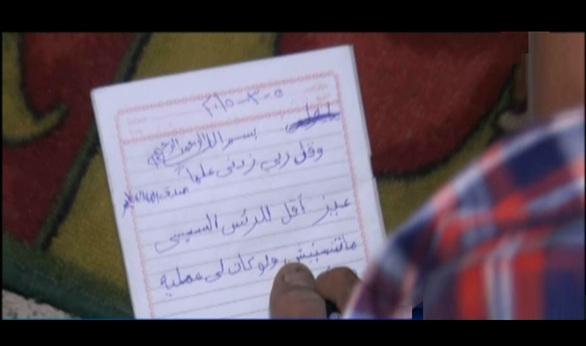 ٥-٣-٢٠١٥
بسم الله الرحمن الرحيم
وقل ربي زدني علماً
صدق الله العظيم
عيز أقل للرئس السيسي
ماتنسنيش ولو كان لى عمليه